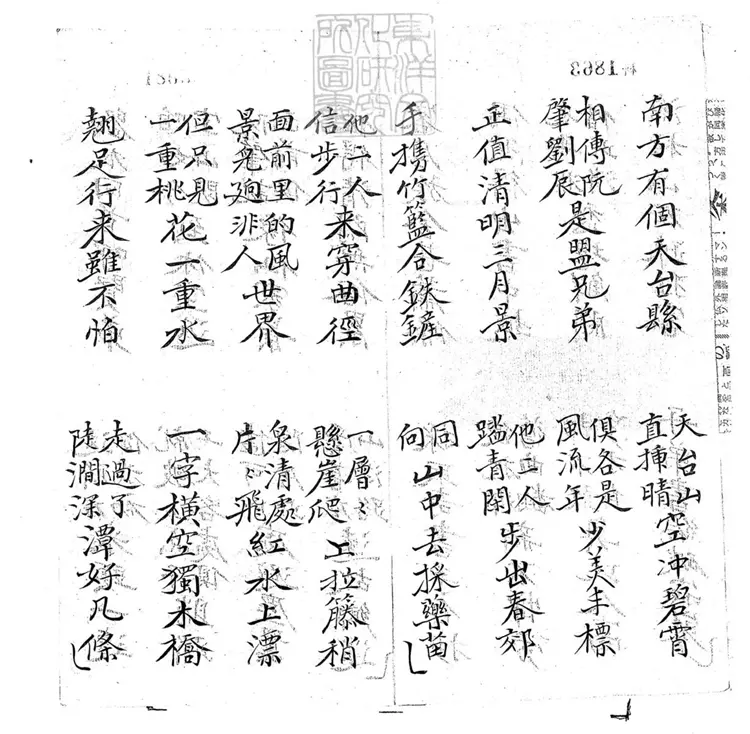 南方有個天台縣　天台山直揷晴空冲碧霄
相傳阮肇劉辰是盟兄弟　俱各是風流年少美丰標
正值清明三月景　他二人踏青閑步出春郊
手携竹籃合鉄鏟　同向山中去採藥苗
他二人信步行来穿曲徑　一層〻懸崖爬上拉籐稍
面前里的風景光逈非人世界　泉清處片〻飛紅水上漂
但只見一重桃花一重水　一字橫空獨木橋
翹足行来雖不怕　走過了陡澗深潭好几條
1863